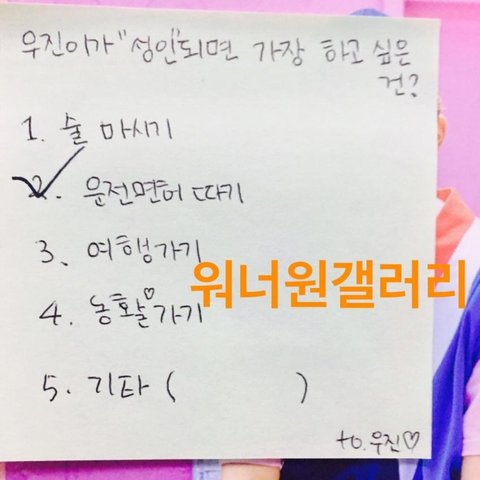 우진이가 "성인"되면 가장 하고 싶은
건?
1. 술 마시기
2. 운전면허 따기
3. 여행가기
워너원갤러리
4. 농활♡가기
5. 기타 (        )
to. 우진♡